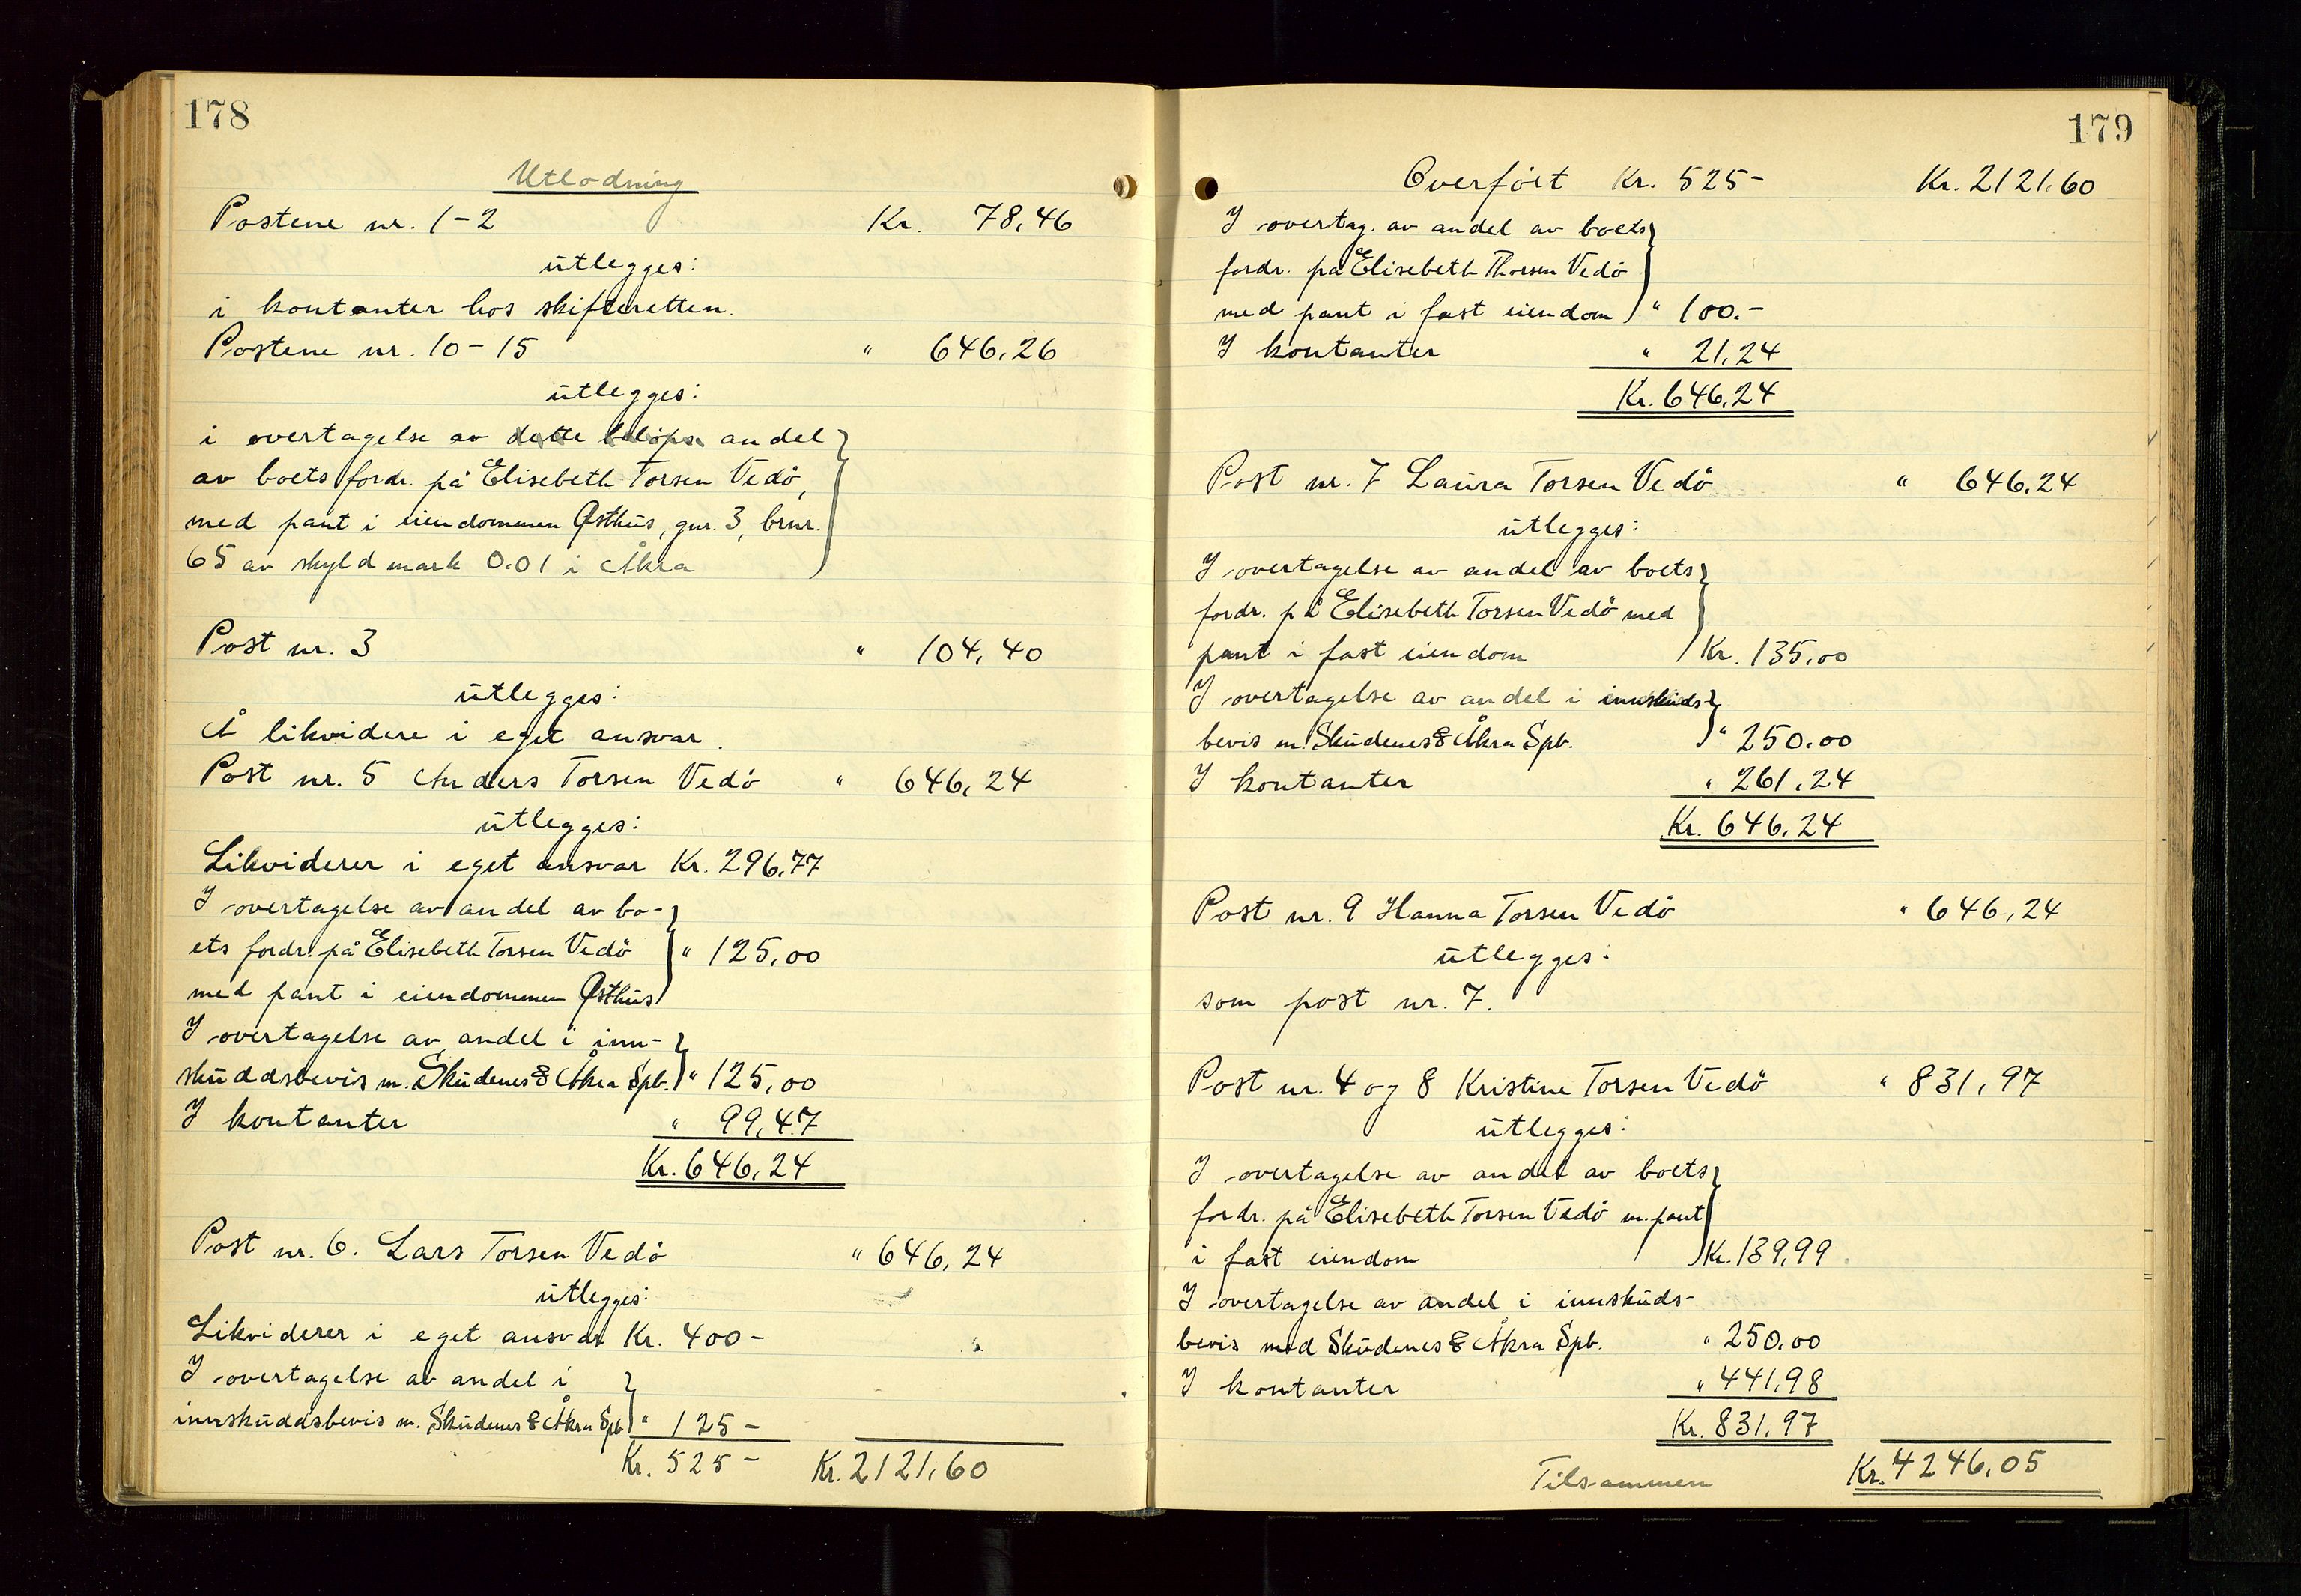 178
Utlodning
Postene nr. 1-2 Kr. 78,46
utlegges:
i kontanter hos skifteretten.
Postene nr. 10-15 " 646,26
utlegges:
i overtagelse av dette beløps andel
av boets fordr. på Elisebeth Torsen Vedö,
med pant i eiendommen Østhus, gnr. 3, brnr.
65 av skyld mark 0.01 i Åkra
Post nr. 3 " 104,40
utlegges:
Å likvidere i eget ansvar.
Post nr. 5 Anders Torsen Vedö " 646,24
utlegges:
Likviderer i eget ansvar Kr. 296,77
I overtagelse av andel av bo-
ets fordr. på Elisebeth Torsen Vedö " 125,00
med pant i eiendommen Østhus
I overtagelse av andel i inn-
skuddsbevis m. Skudenes & Åkra Spb. " 125,00
I kontanter " 99,47
Kr. 646,24
Post nr. 6. Lars Torsen Vedö " 646,24
utlegges:
Likviderer i eget ansvar Kr. 400-
I overtagelse av andel i
innskuddsbevis m. Skudenes & Åkra Spb " 125-
Kr. 525- Kr. 2121,60
179
Overført Kr. 525- Kr. 2121,60
I overtag. av andel av boets
fordr. på Elisebeth Thorsen Vedö
med pant i fast eiendom " 100.-
I kontanter " 21,24
Kr. 646,24
Post nr. 7 Laura Torsen Vedö " 646,24
utlegges:
I overtagelse av andel av boets
fordr. på Elisebeth Torsen Vedö med
pant i fast eiendom Kr. 135,00
I overtagelse av andel i innskuds-
bevis m. Skudenes & Åkra Spb. " 250.00
I kontanter " 261,24
Kr. 646,24
Post nr. 9 Hanna Torsen Vedö " 646,24
utlegges:
som post nr. 7.
Post nr. 4 og 8 Kristine Torsen Vedö " 831,97
utlegges:
I overtagelse av andel av boets
fordr. på Elisebeth Torsen Vedö m. pant
i fast eiendom Kr. 139,99
I overtagelse av andel i innskuds-
bevis med Skudenes & Åkra Spb. " 250.00
I kontanter " 441,98
Kr. 831,97
Tilsammen Kr. 4246,05